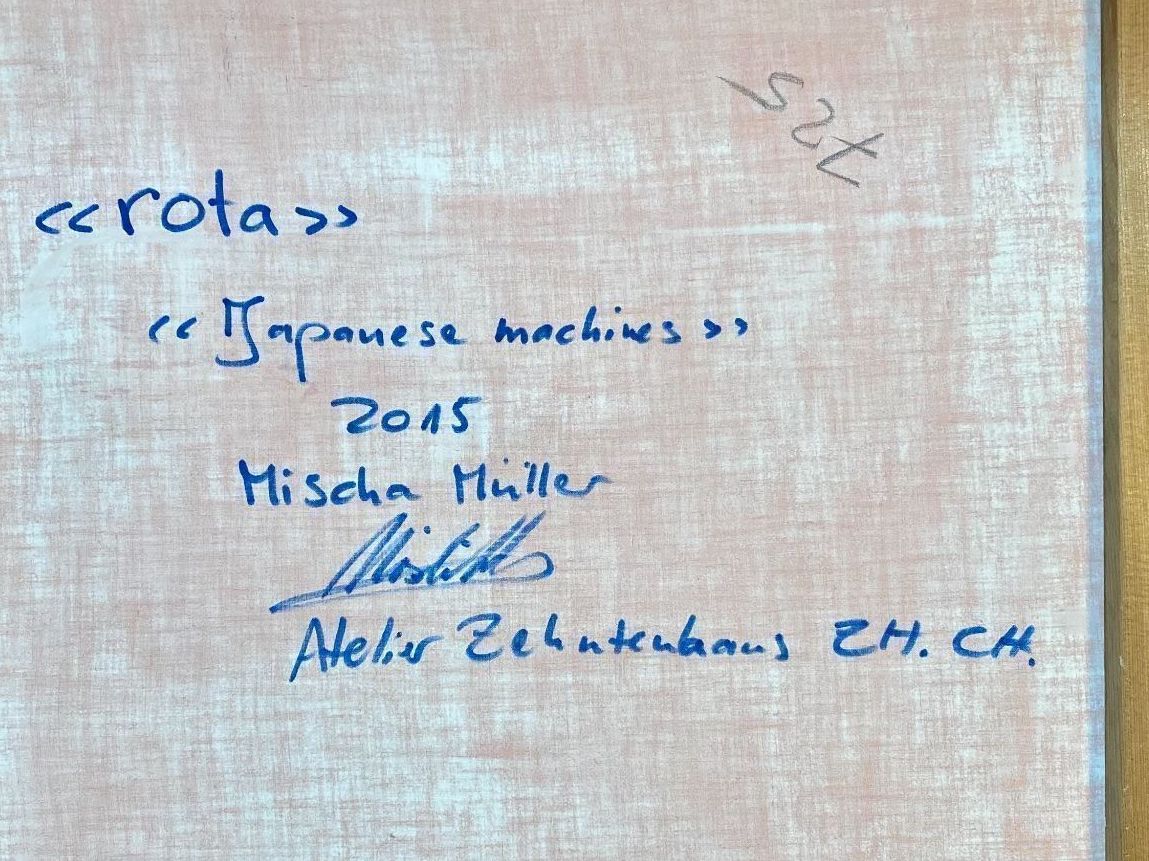 «rota»
«Japanese machines»
2015
Mischa Müller
Atelier Zehntenhaus ZH. CH.